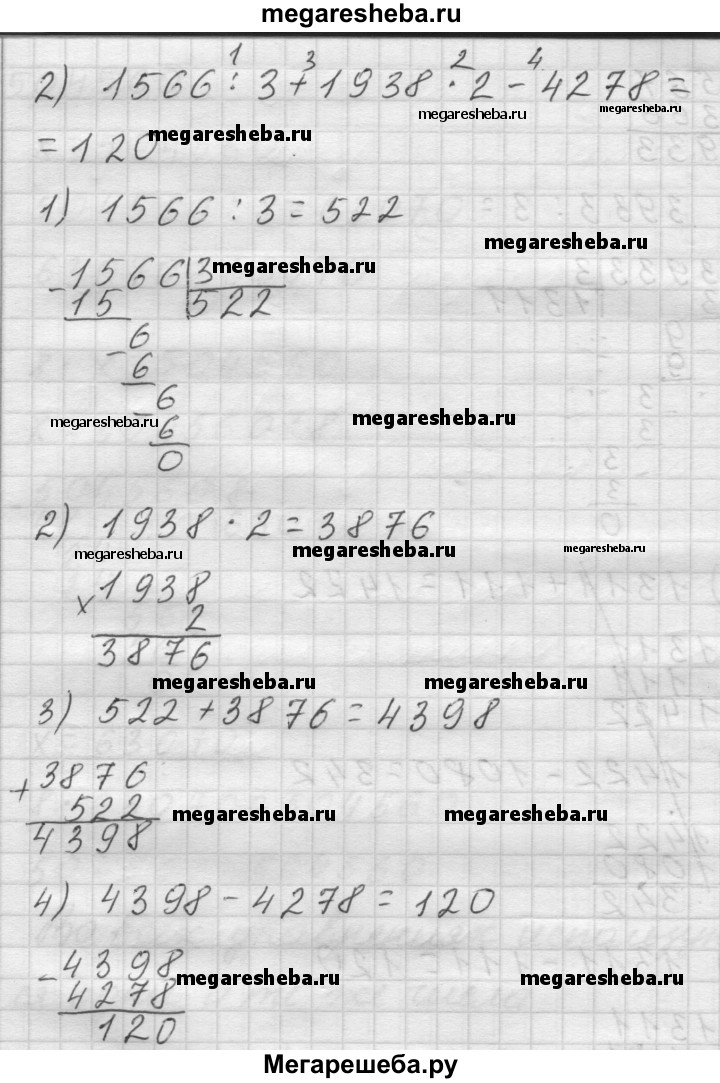 megaresheba.ru
1 3 2 4
2) 1566 : 3 + 1938 · 2 - 4278 =
megaresheba.ru megaresheba.ru
= 120 megaresheba.ru
1) 1566 : 3 = 522
megaresheba.ru
- 1566 | 3 megaresheba.ru
15 | 522
- 6
6
- 6
megaresheba.ru megaresheba.ru
6
0
2) 1938 · 2 = 3876
megaresheba.ru megaresheba.ru megaresheba.ru
× 1938
2
3876
megaresheba.ru megaresheba.ru
3) 522 + 3876 = 4398
+ 3876
522 megaresheba.ru megaresheba.ru
4398
4) 4398 - 4278 = 120
- 4398 megaresheba.ru megaresheba.ru
4278
120
Мегарешеба.ру